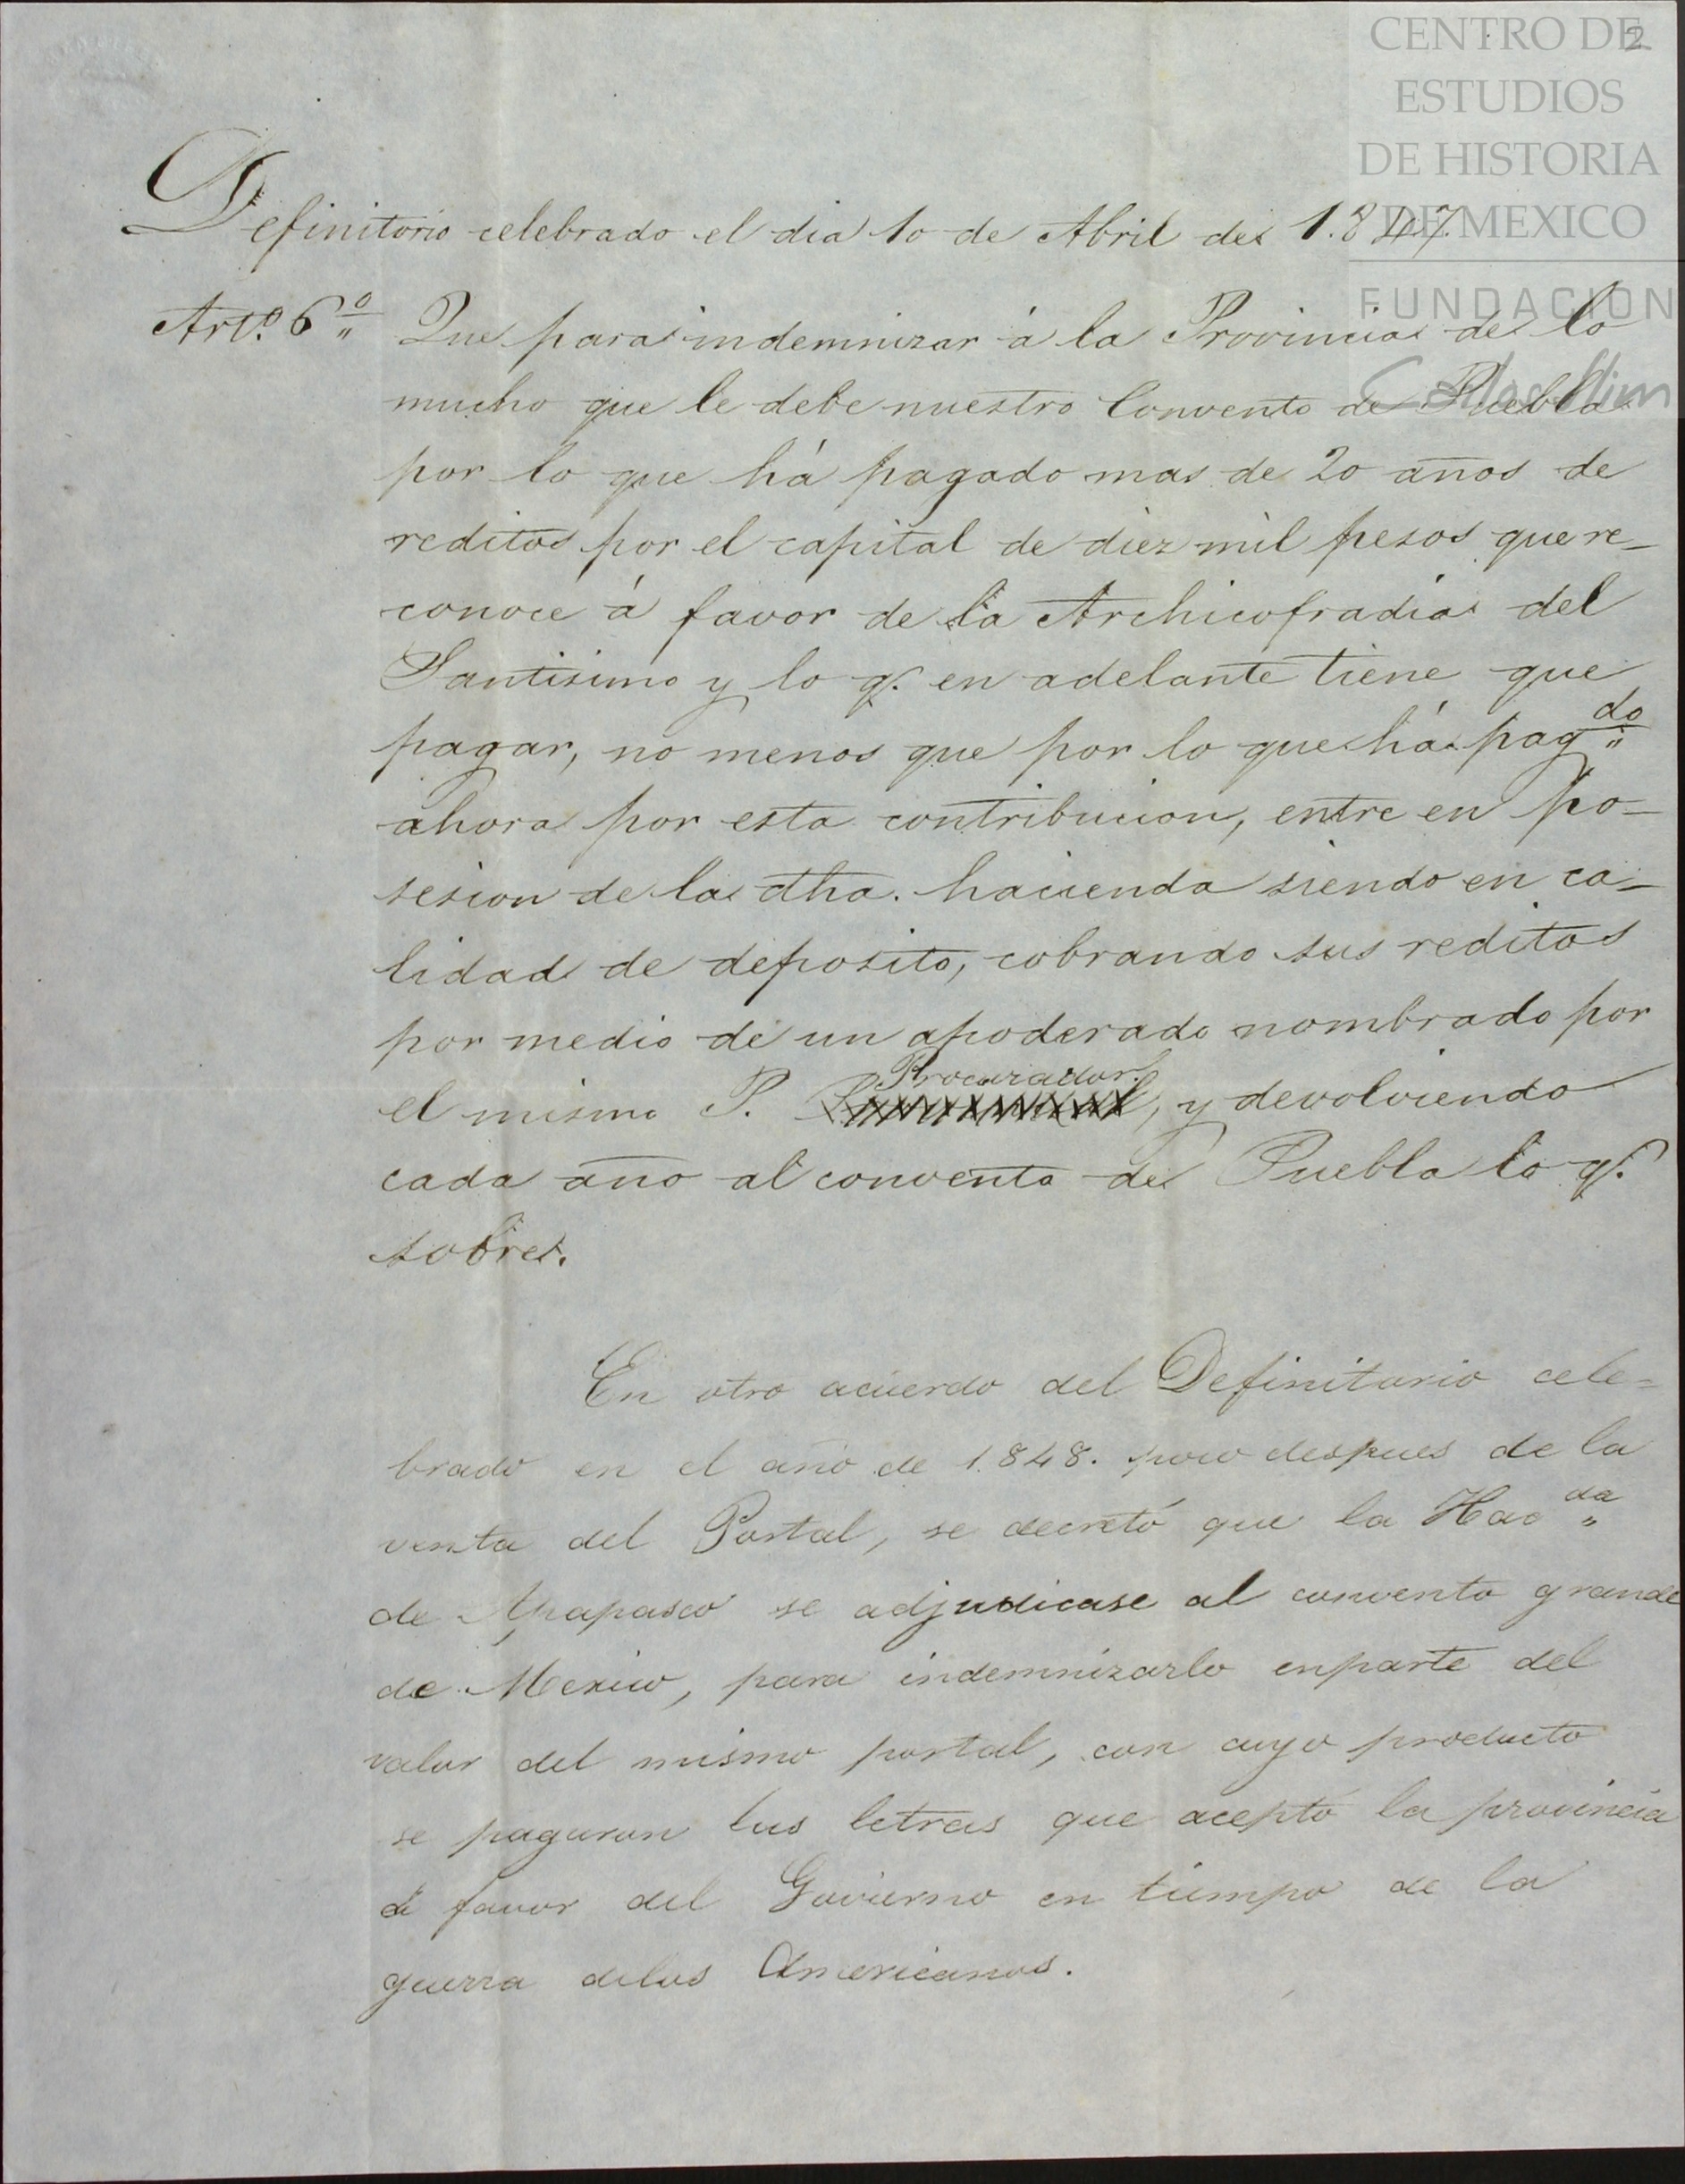 CENTRO DE
ESTUDIOS
DE HISTORIA
DE MEXICO
FUNDACION
Carlos Slim
2
Definitorio celebrado el dia 10 de Abril de 1.847.
Arto. 6o Que para indemnizar á la Provincia de lo
mucho que le debe nuestro Convento de Puebla
por lo que há pagado mas de 20 años de
reditos por el capital de diez mil pesos que re-
conoce á favor de la Archicofradia del
Santisimo y lo q. en adelante tiene que
pagar, no menos que por lo que há pagdo
ahora por esta contribucion, entre en po-
sesion de la dha. hacienda siendo en ca-
lidad de deposito, cobrando sus reditos
por medio de un apoderado nombrado por
el mismo P. Procurador, y devolviendo
cada año al convento de Puebla lo q.
sobre.
En otro acuerdo del Definitorio cele=
brado en el año de 1.848. poco despues de la
venta del Portal, se decretó que la Hacda
de Apapasco se adjudicase al convento grande
de Mexico, para indemnizarlo enparte del
valor del mismo portal, con cuyo producto
se pagaron las letras que aceptó la provincia
á favor del Govierno en tiempo de la
guerra delos Americanos.